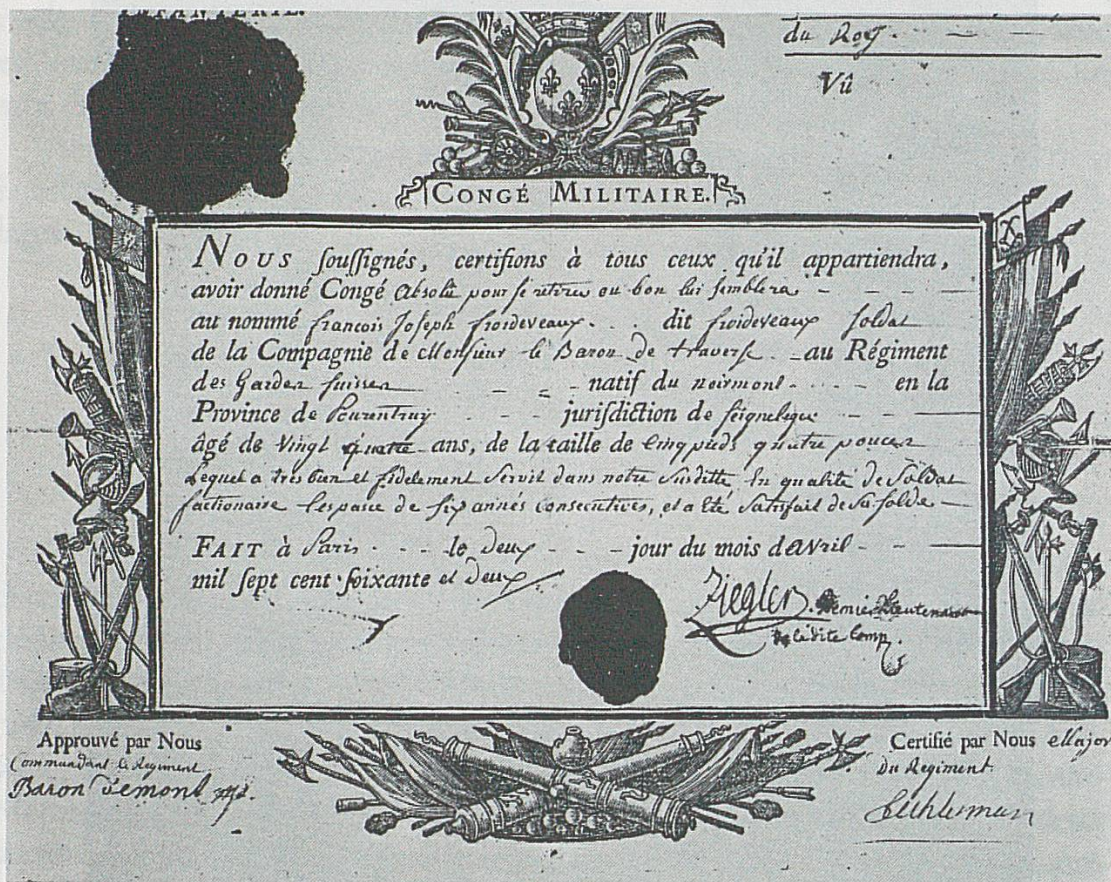 INFANTERIE.
du Roy.
Vû
CONGÉ MILITAIRE.
Nous soussignés, certifions à tous ceux qu'il appartiendra,
avoir donné Congé absolu pour se retirer ou bon lui semblera
au nommé françois Joseph froideveaux dit froideveaux soldat
de la Compagnie de Monsieur le Baron de traverse au Régiment
des Gardes suisses natif du noirmont en la
Province de Pourentruy jurisdiction de
âgé de vingt quatre ans, de la taille de Cinq pieds quatre pouces
Lequel a tres bien et fidelement Servit dans notre Susditte En qualité de Soldat
factionaire l'espace de six annés consecutives, et a Eté Satisfait de Sa solde
FAIT à Paris le Deux jour du mois d'avril
mil sept cent soixante et deux
Ziegler. Lieutenant
de ladite Comp.
Approuvé par Nous
Commandant le Regiment
Baron
Certifié par Nous Major
Du Regiment